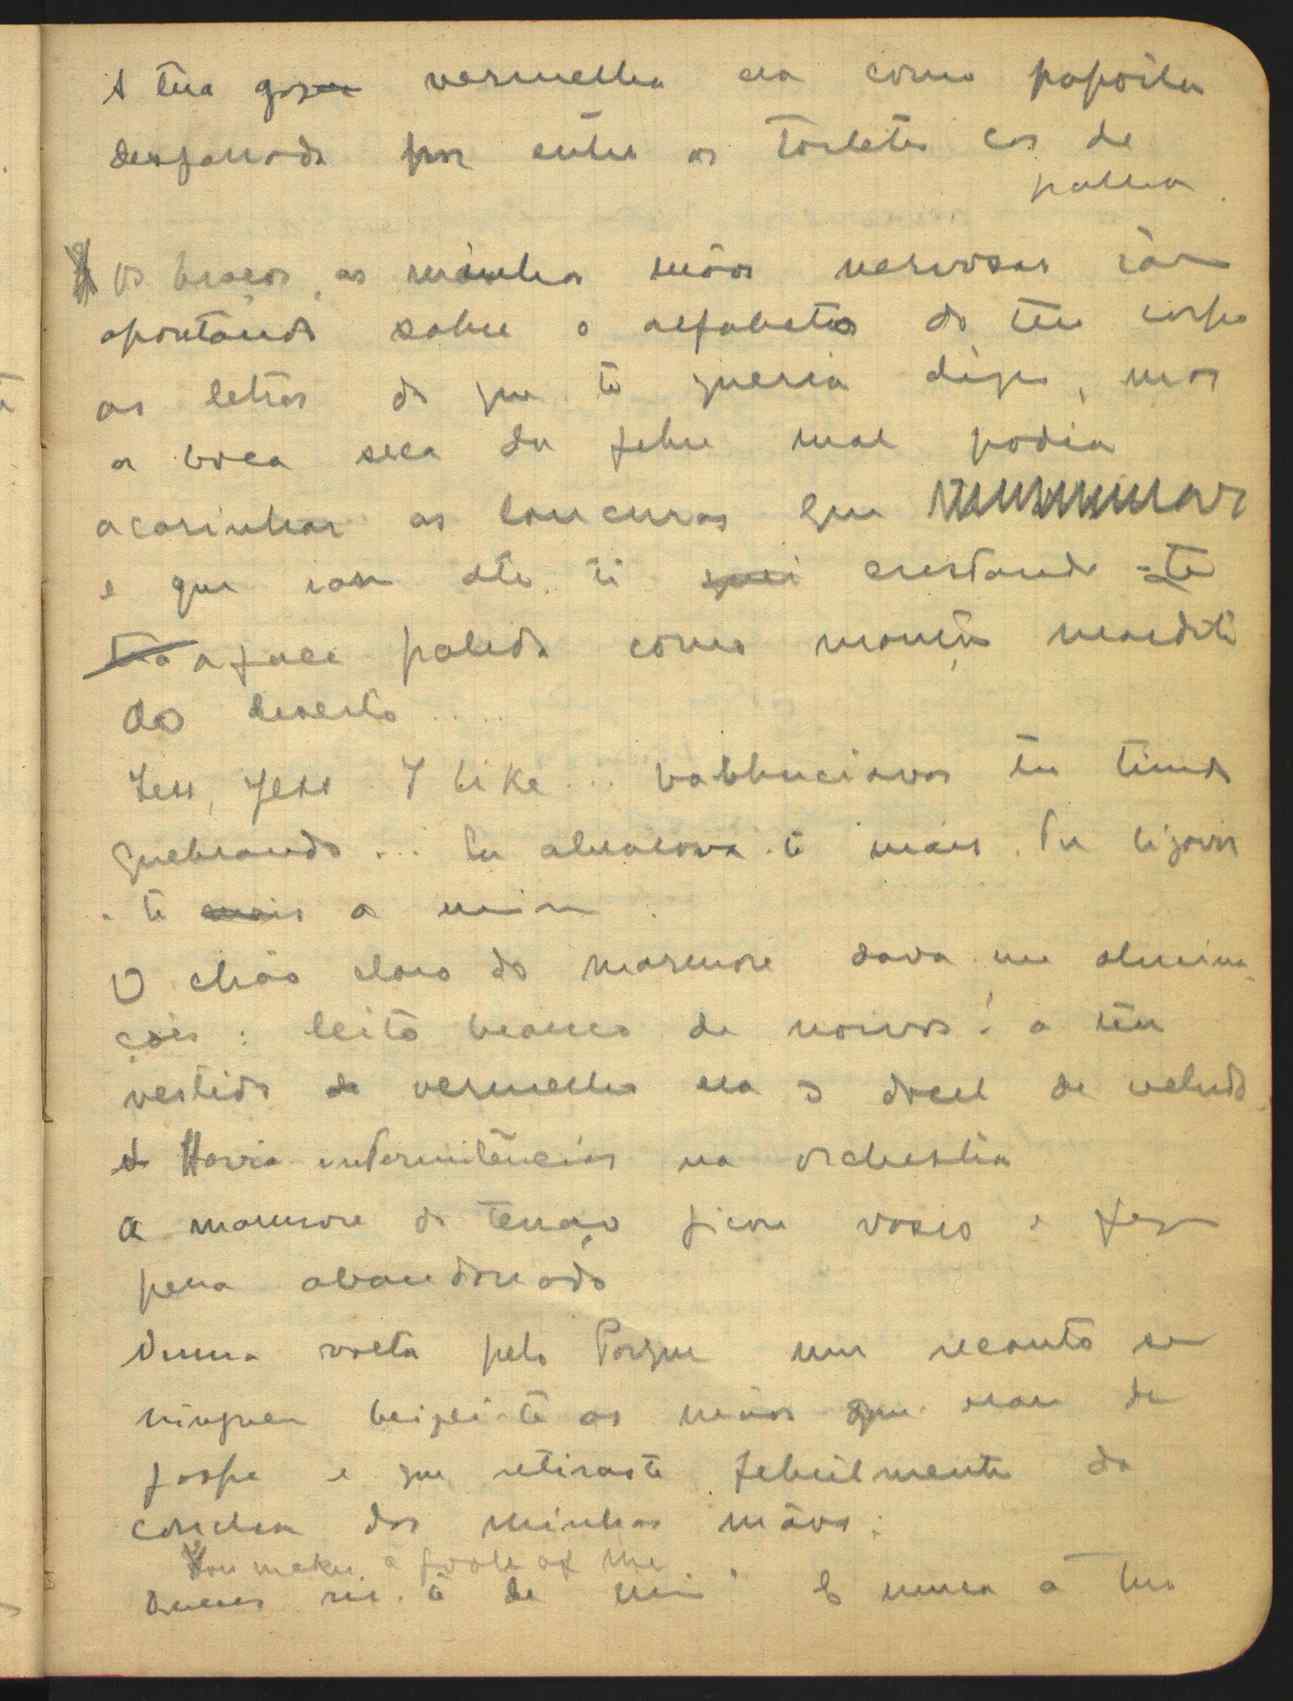 A tua gaze vermelha era como papoila
desgarrada por entre os de
palha.
Os braços, as minhas mãos nervosas iam
apontando sobre o alfabeto do teu corpo
as letras do que te queria dizer, mas
a boca seca da febre mal podia
acarinhar as loucuras que murmurava
e que iam até ti crestando-te
a face palida como manhã maldita
do deserto.....
Yess, Yess I like... balbuciavas tu timida
quebrando... Eu abraçava-te mais. Tu ligavas
-te mais a mim.
O chão claro do marmore dava-me alucina-
ções: leito branco de noivos! o teu
vestido de vermelho era o docel de veludo.
Havia intermitências na orchestra
O marmore do terraço ficou vasio e fez
pena abandonado
Numa volta pelo Parque num recanto sem
ninguem beijei-te as mãos que eram de
jaspe e que retiraste febrilmente da
concha das minhas mãos:
You make a foole of me
Queres rir-te de mim? E nunca a tua